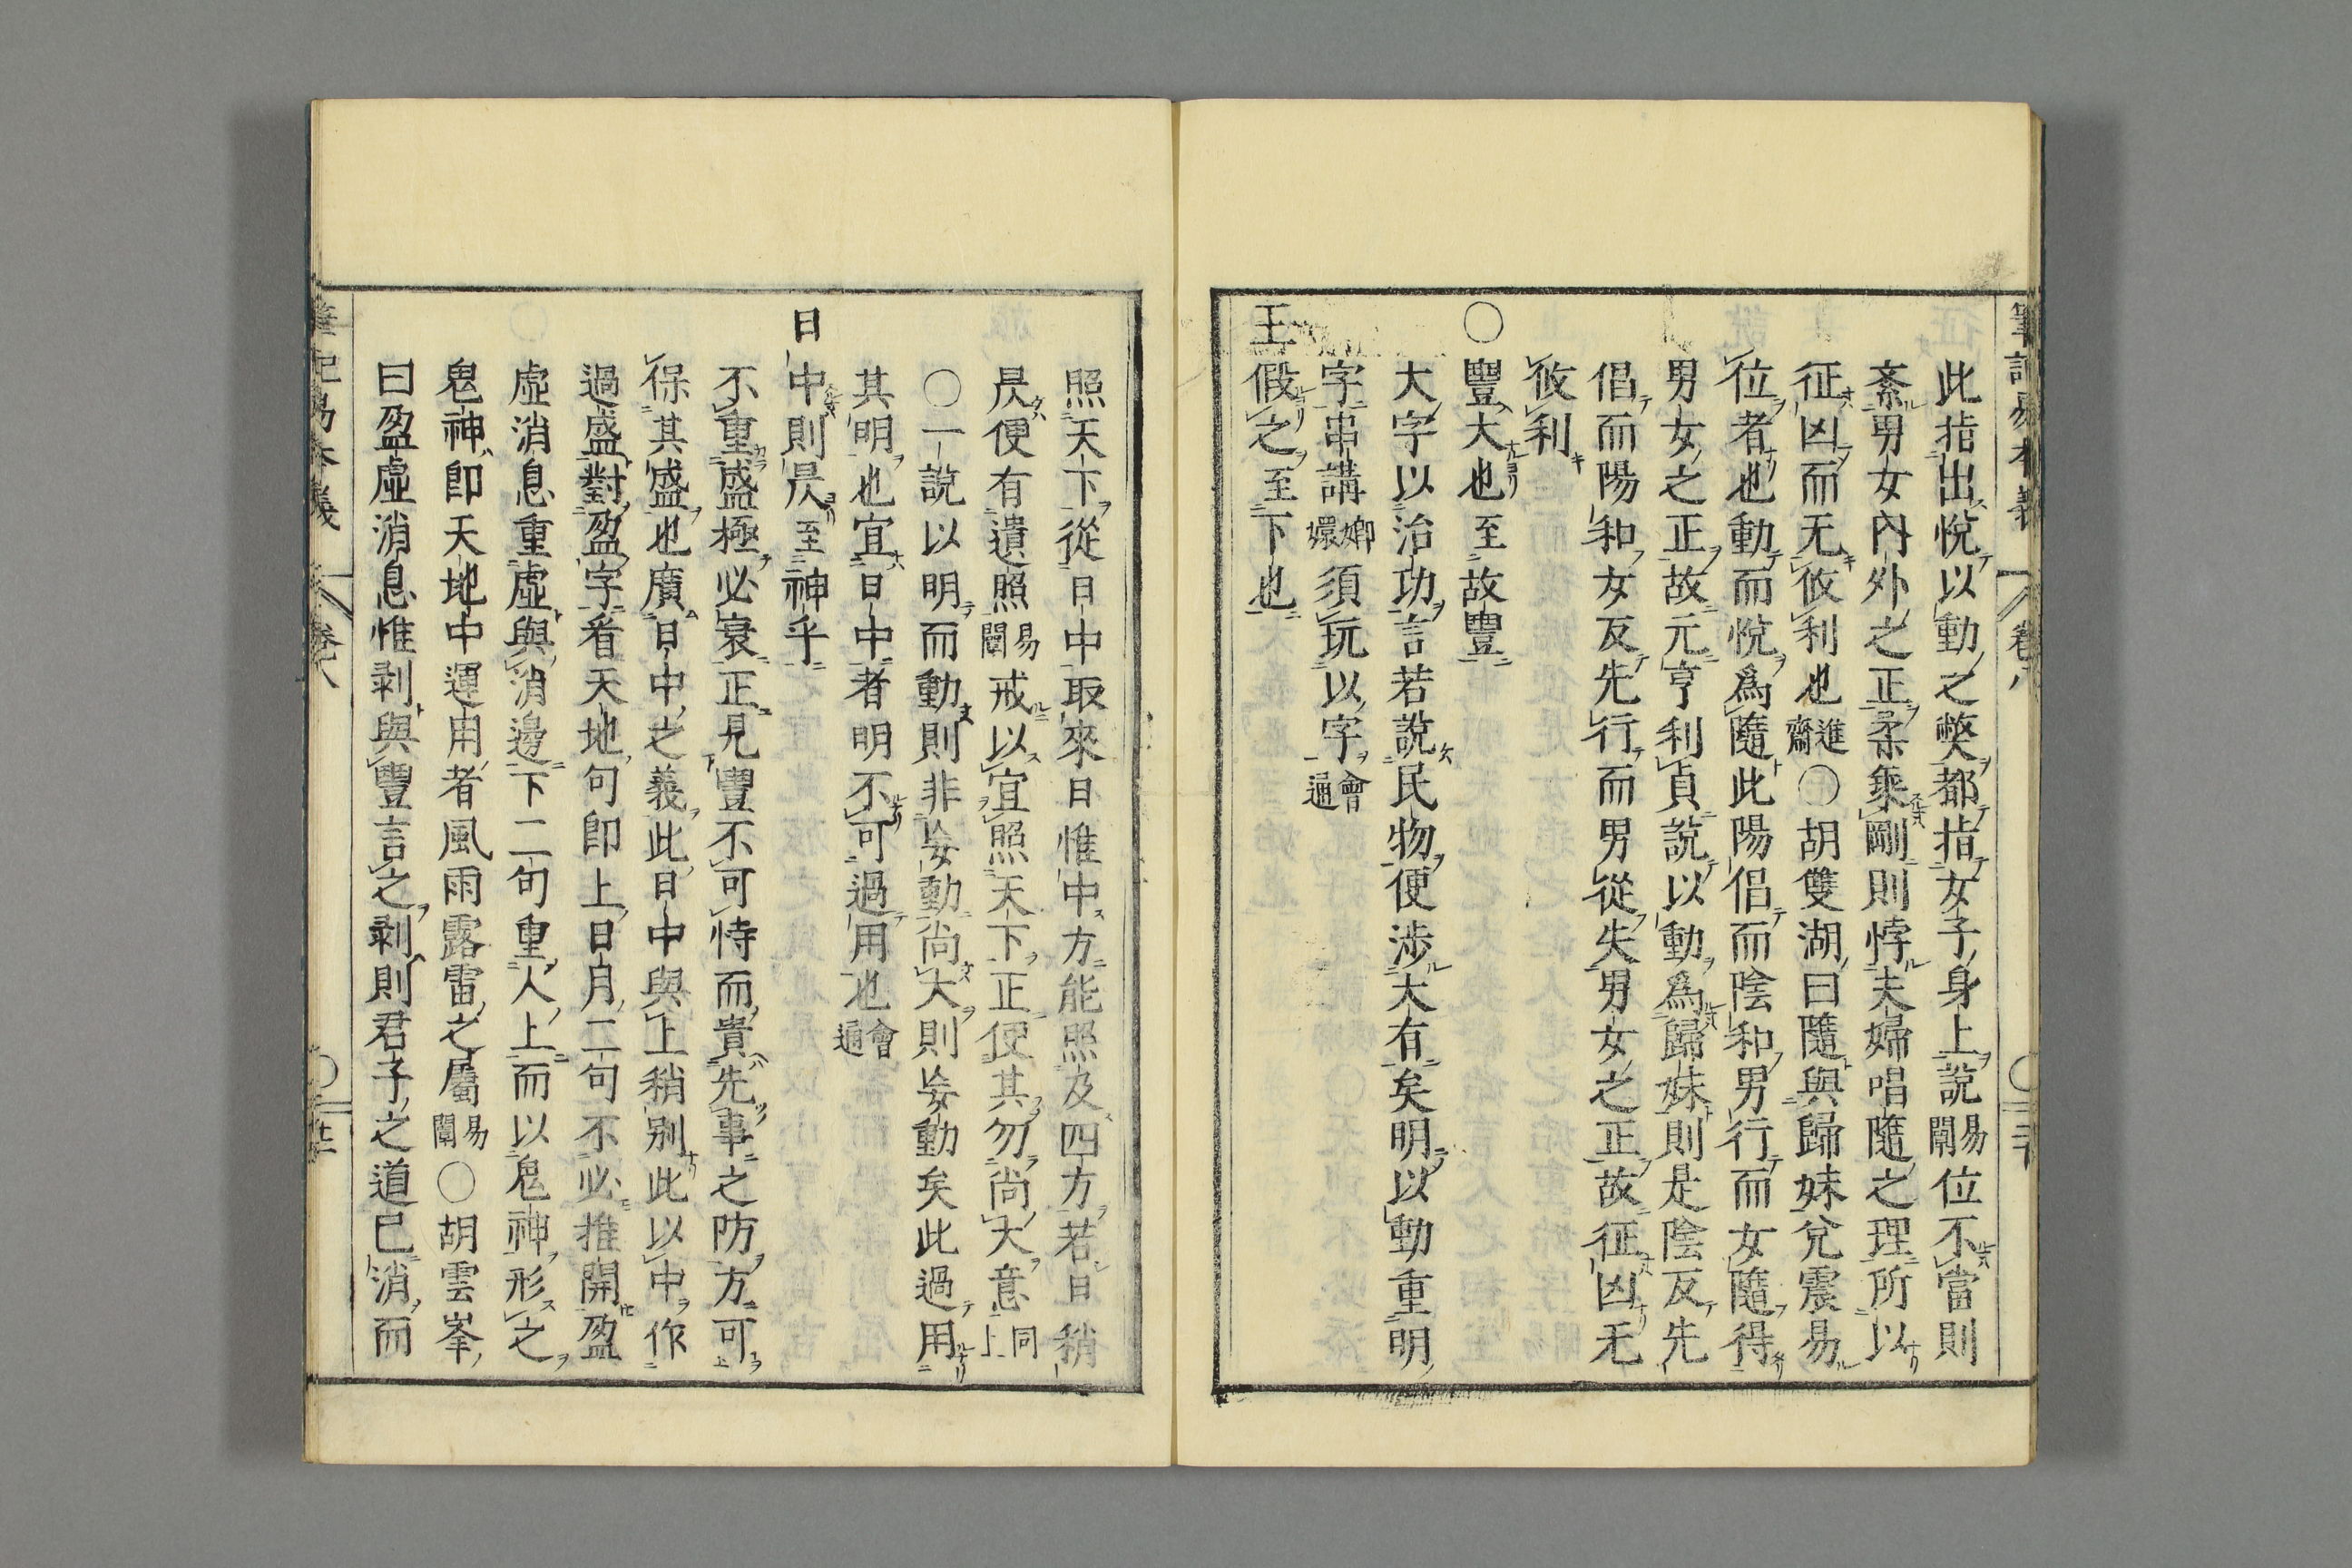 筆記易本義 卷八
此指出悅以動之獘都指女子身上說易闡位不當則
紊男女內外之正柔乗剛則悖夫婦唱隨之理所以
征凶而无攸利也進齋〇胡雙湖曰隨與歸妹兌震易
位者也動而悅爲隨此陽倡而陰和男行而女隨得
男女之正故元亨利貞說以動爲歸妹則是陰反先
倡而陽和女反先行而男從失男女之正故征凶无
攸利
〇豐大也至故豐
大字以治功言若說民物便涉大有矣明以動重明
字串講嫏嬛須玩以字會通
王假之至下也
照天下從日中取來日惟中方能照及四方若日稍
昃便有遺照易闡戒以宜照天下正便其勿尚大意同上
〇一說以明而動則非妄動尚大則妄動矣此過用
其明也宜日中者明不可過用也會通
日中則昃至神乎
不重盛極必衰正見豐不可恃而貴先事之防方可
保其盛也廣日中之義此日中與上稍別此以中作
過盛對盈字看天地句即上日月二句不必推開盈
虛消息重虛與消邊下二句重人上而以鬼神形之
鬼神即天地中運用者風雨露雷之屬易闡〇胡雲峯
曰盈虛消息惟剥與豐言之剥則君子之道已消而
筆記易本義 卷八